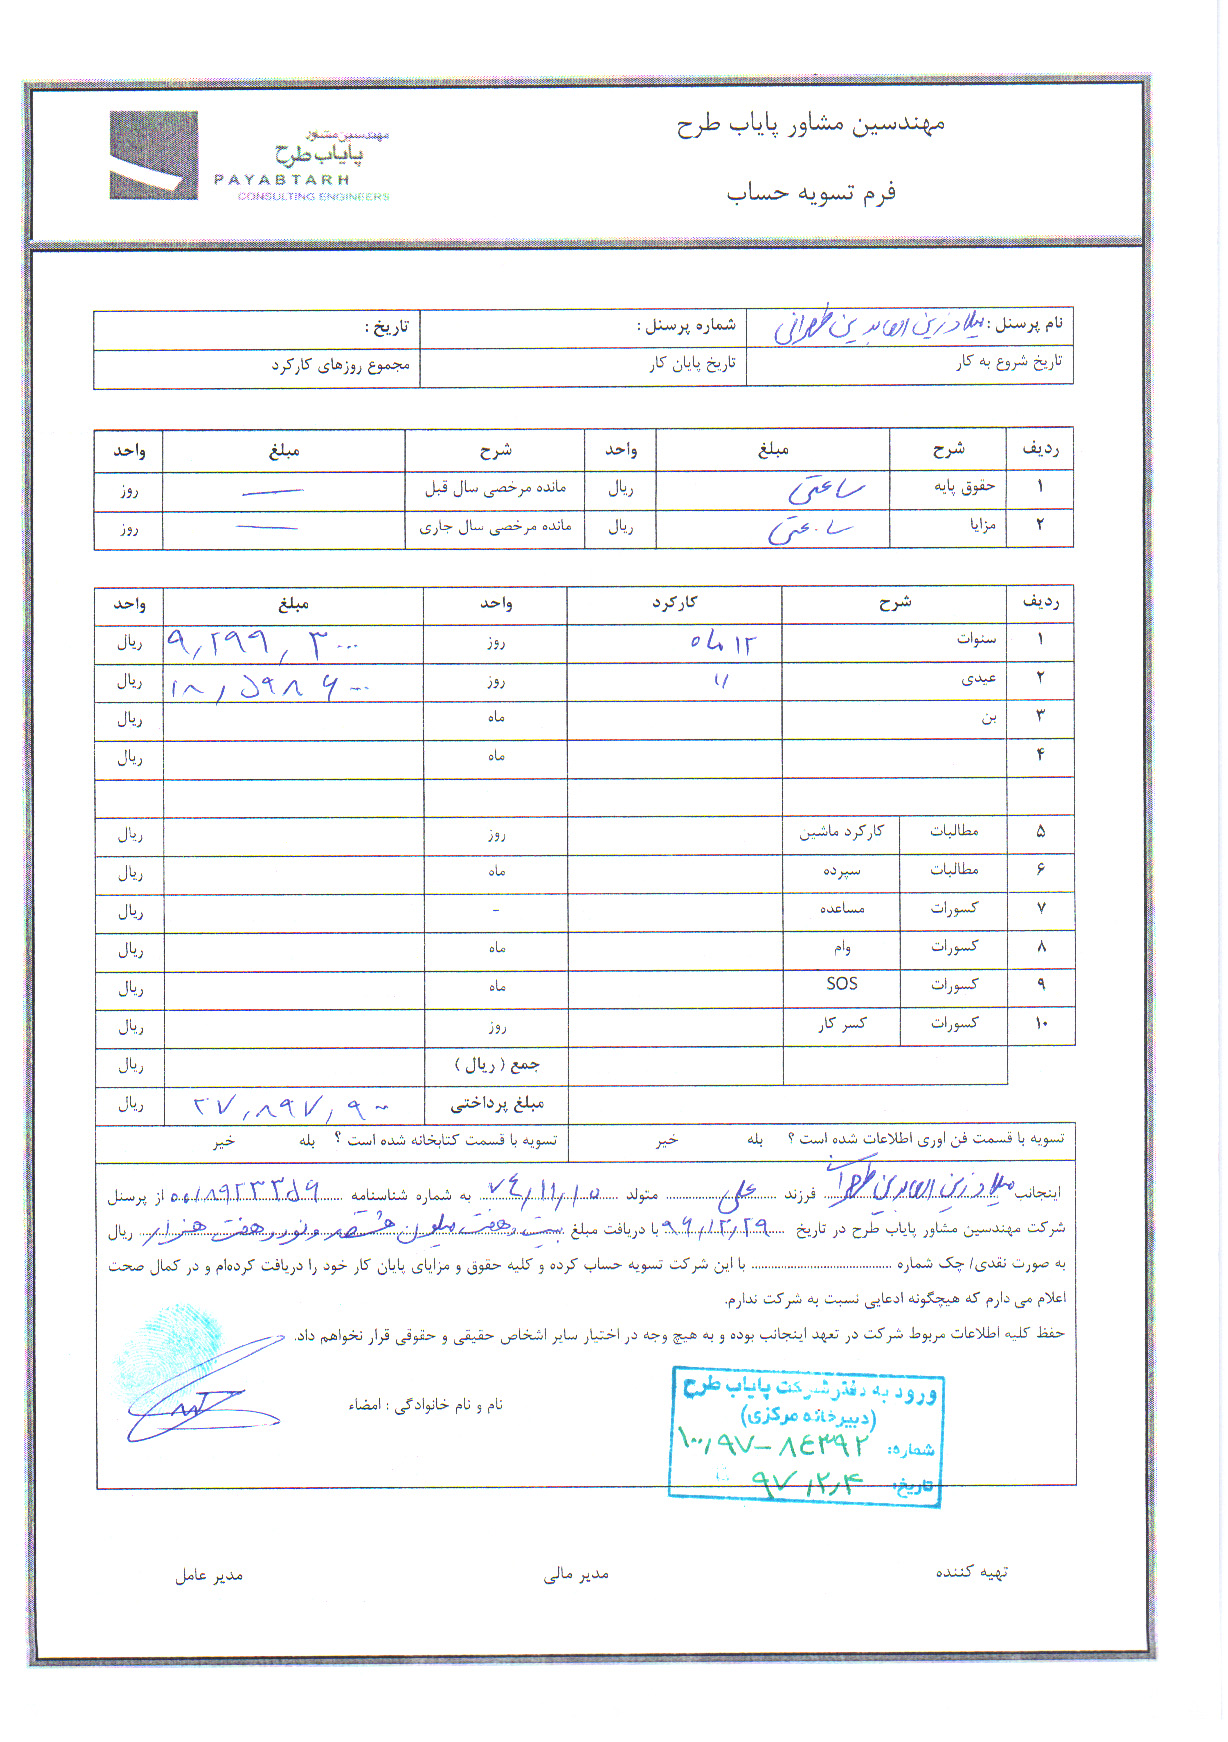 مهندسین مشاور پایاب طرح
فرم تسویه حساب
مهندسین مشاور
پایاب طرح
PAYABTARH
CONSULTING ENGINEERS
نام پرسنل : میلاد زین العابدین طهرانی شماره پرسنل : تاریخ :
تاریخ شروع به کار تاریخ پایان کار مجموع روزهای کارکرد
ردیف شرح مبلغ واحد شرح مبلغ واحد
۱ حقوق پایه ساعتی ریال مانده مرخصی سال قبل — روز
۲ مزایا ساعتی ریال مانده مرخصی سال جاری — روز
ردیف شرح کارکرد واحد مبلغ واحد
۱ سنوات ۱۲ ماه روز ۹,۲۹۹,۳۰۰ ریال
۲ عیدی // روز ۱۸,۵۹۸,۶۰۰ ریال
۳ بن ماه ریال
۴ ماه ریال
۵ مطالبات کارکرد ماشین روز ریال
۶ مطالبات سپرده ماه ریال
۷ کسورات مساعده - ریال
۸ کسورات وام ماه ریال
۹ کسورات SOS ماه ریال
۱۰ کسورات کسر کار روز ریال
جمع ( ریال ) ریال
مبلغ پرداختی ۲۷,۸۹۷,۹۰۰ ریال
تسویه با قسمت فن اوری اطلاعات شده است ؟ بله خیر تسویه با قسمت کتابخانه شده است ؟ بله خیر
اینجانب میلاد زین العابدین طهرانی فرزند علی متولد ۷۴/۱۱/۱۵ به شماره شناسنامه ۰۰۱۸۹۲۳۳۵۶ از پرسنل
شرکت مهندسین مشاور پایاب طرح در تاریخ ۹۶/۱۲/۲۹ با دریافت مبلغ بیست و هفت میلیون هشتصد و نود و هفت هزار ریال
به صورت نقدی/ چک شماره با این شرکت تسویه حساب کرده و کلیه حقوق و مزایای پایان کار خود را دریافت کرده‌ام و در کمال صحت
اعلام می دارم که هیچگونه ادعایی نسبت به شرکت ندارم.
حفظ کلیه اطلاعات مربوط شرکت در تعهد اینجانب بوده و به هیچ وجه در اختیار سایر اشخاص حقیقی و حقوقی قرار نخواهم داد.
نام و نام خانوادگی : امضاء
ورود به دفتر شرکت پایاب طرح
(دبیرخانه مرکزی)
شماره: ۱۰۰/۹۷-۸۴۳۹۲
تاریخ: ۹۷/۲/۴
تهیه کننده مدیر مالی مدیر عامل